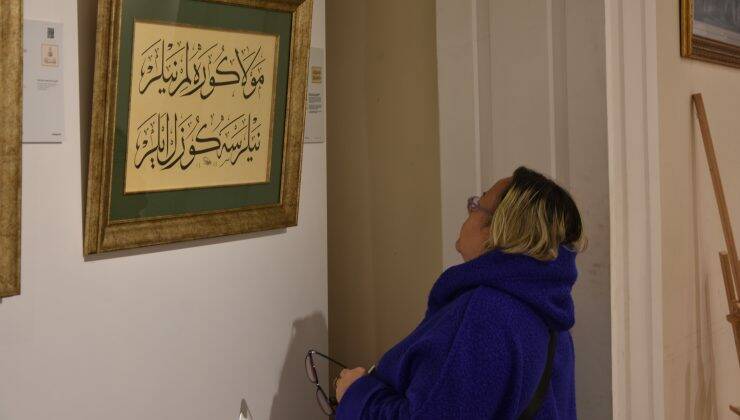 مولا كوره لم نيلر
نيلرسه كوزل ايلر